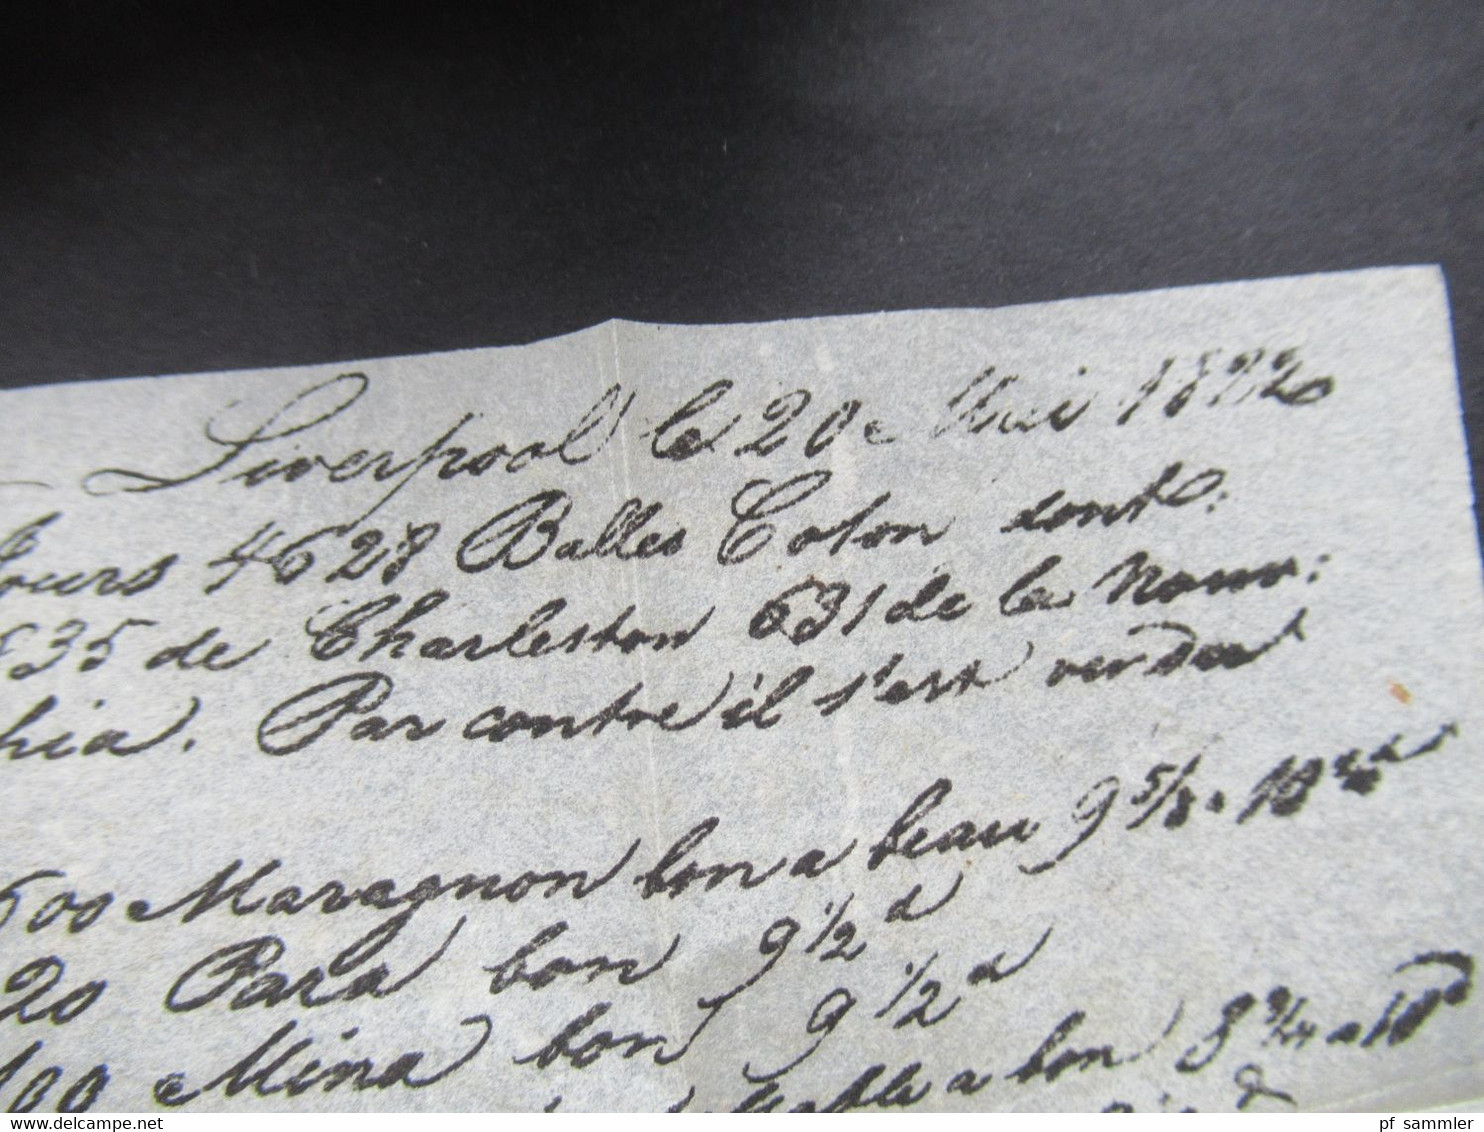 Liverpool le 20 Mai 1822
Jours 4628 Balles Coton dont
635 de Charleston 631 de la Nouv:
hia. Par contre il s'est vendu
600 Maragnon bon a beau 9 5/8 a 10
20 Para bon 9 1/2 d
100 Mina bon 9 1/2 d
a bon 8 3/4 a 10 d
delcampe.net
pf_sammler